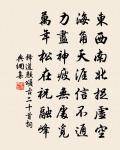 東西南北捉虛空
海角天涯信不通
力盡神疲無處覓
萬年松在祝融峰
釋道顏頌古二十首詞
典圖集